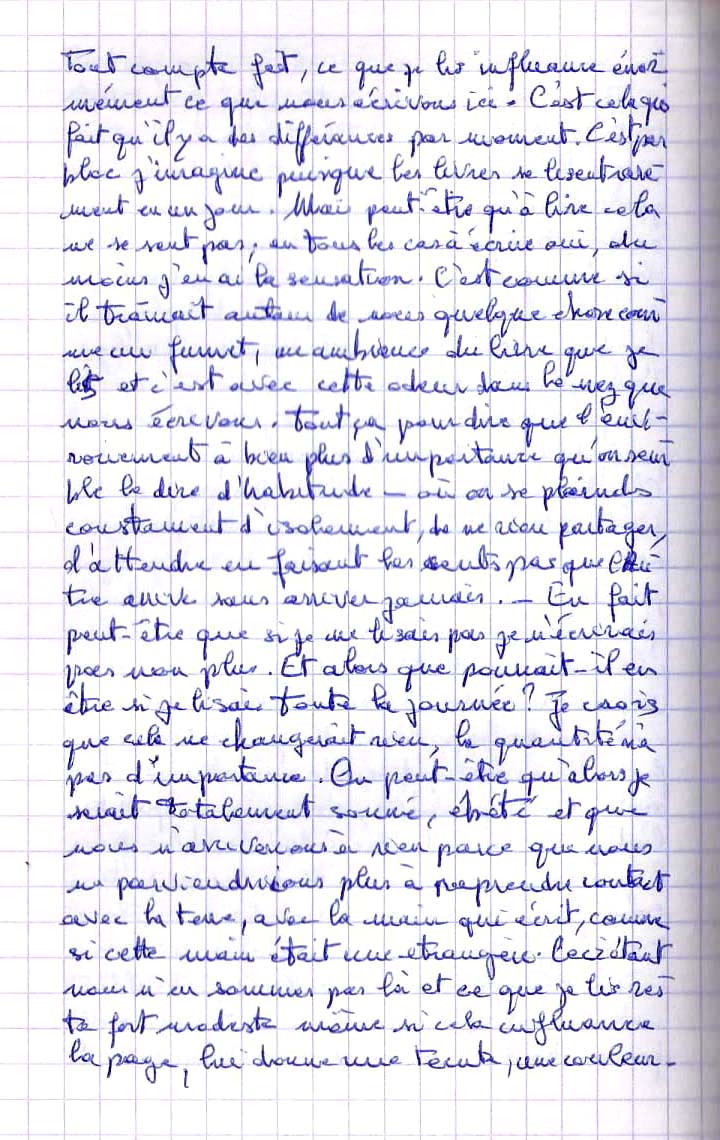 Tout compte fait, ce que je lis influence énor
mément ce que nous écrivons ici. C'est cela qui
fait qu'il y a des différences par moment. C'est par
bloc j'imagine puisque les livres se lisent rare
ment en un jour. Mais peut-être qu'à lire cela
ne se sent pas; en tous les cas à écrire oui, du
moins j'en ai la sensation. C'est comme si
il traînait autour de nous quelque chose com
me un fumet, une ambience du livre que je
lis et c'est avec cette odeur dans le nez que
nous écrivons. Tout ça pour dire que l'envi-
ronnement à bien plus d'importance qu'on sem
ble le dire d'habitude — où on se plainds
constament d'isolement, de ne rien partager,
d'attendre en faisant les cents pas que l'au
tre arrive sans arriver jamais. — En fait
peut-être que si je ne lisais pas je n'écrirais
pas non plus. Et alors que pourrait-il en
être si je lisais toute la journée? Je crois
que cela ne changerait rien, la quantité n'a
pas d'importance. Ou peut-être qu'alors je
serait totalement sonné, ébété et que
nous n'arriverions à rien parce que nous
ne parviendrions plus à reprendre contact
avec la terre, avec la main qui écrit, comme
si cette main était une étrangère. Ceci étant
nous n'en sommes pas là et ce que je lis res
te fort modeste même si cela influence
la page, lui donne une teinte, une couleur.